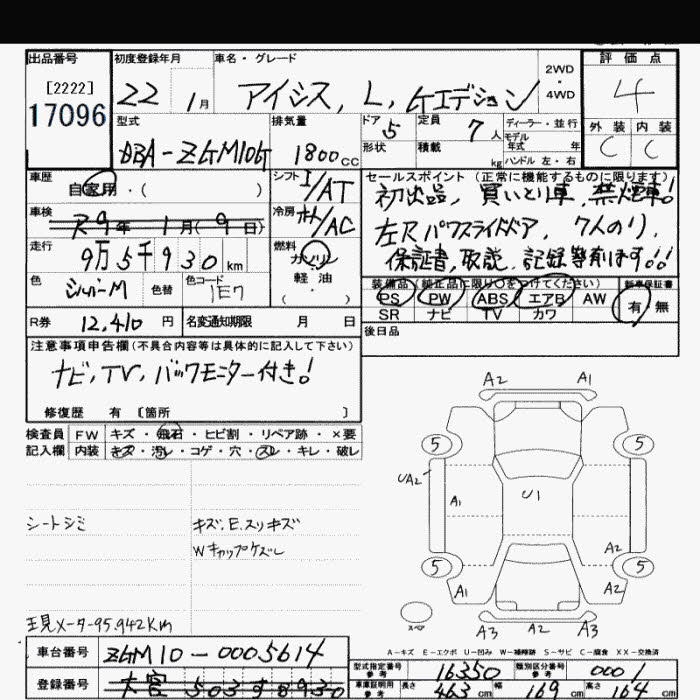 出品番号 初度登録年月 車名・グレード 評価点
[2222]
17096
22 1月 アイシス, L, Gエディション 2WD・4WD 4
型式 排気量 ドア 定員 ディーラー・並行 外装 内装
DBA-ZGM10G 1800cc 5 7人 モデル年式 年 C C
形状 積載 kg ハンドル 左・右
車歴 自家用・( ) シフト I/AT
セールスポイント (正常に機能するものに限ります)
初出品, 買いとり車, 禁煙車!
左R パワースライドドア, 7人のり,
保証書, 取説, 記録等有ります!!
車検 R9年 1月(9日) 冷房 オート/AC
走行 9万5千930km 燃料 ガソリン
軽・油
( )
色 シルバーM 色替 色コード 1E7
装備品(純正品に限り○をつけてください) 新車保証書
PS PW ABS エアB AW 有・無
SR ナビ TV カワ
R券 12,410円 名変通知期限 月 日
後日品
注意事項申告欄(不具合内容等は具体的に記入して下さい)
ナビ, TV, バックモニター付き!
修復歴 有 〔箇所 〕
検査員 FW キズ・飛石・ヒビ割・リペア跡・×要
記入欄 内装 キズ・汚レ・コゲ・穴・スレ・キレ・破レ
シートシミ キズ、E、スリキズ
Wキャップケズレ
現メーター95.942Km
A2 A1
5 5
UA2 A1 U1
A2
5 5
A1 A2
スペア
A3 A2 A3
A-キズ E-エクボ U-凹み W-補修跡 S-サビ C-腐食 XX-交換済
車台番号 ZGM10-0005614
型式指定番号 参考 16350 類別区分番号 参考 0001
登録番号 大宮 503す8930
車庫証明用 参考 長さ 463cm 幅 169cm 高さ 164cm